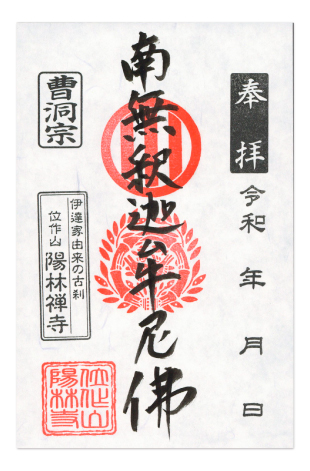 奉拝
令和 年 月 日
南無釈迦牟尼佛
曹洞宗
伊達家由来の古刹
位作山 陽林禅寺
位作山
陽林寺